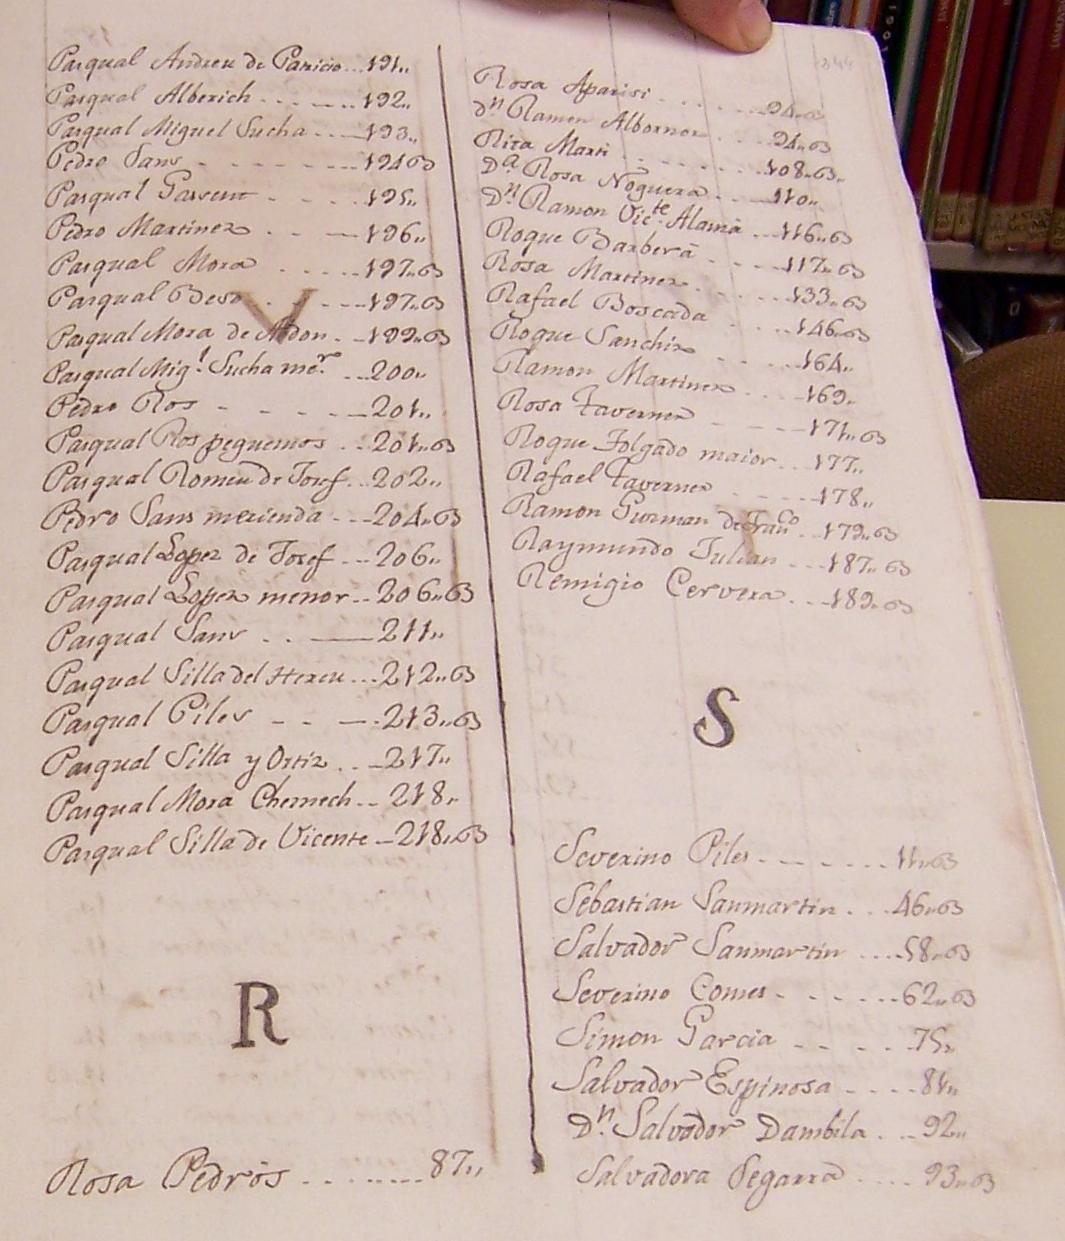 Pasqual Andreu de Paricio...191„
Pasqual Alberich.......192„
Pasqual Miguel Sucha....193„
Pedro Sans - - - - - - - -194 63
Pasqual Garcent - - - -195„
Pedro Martinez . . - —196„
Pasqual Mora .....197„63
Pasqual Beso . . - - -197„63
Pasqual Mora de Abdon. - -199„63
Pasqual Mig.l Sucha me.r ...200„
Pedro Ros - - - - - —201„
Pasqual Ros pequemos . . .201„63
Pasqual Romeu de Josef...202„
Pedro Sans merienda - - -204„63
Pasqual Lopez de Josef ...206„
Pasqual Lopez menor...206„63
Pasqual Sans . . ——211„
Pasqual Silla del Hereu...212„63
Pasqual Piles - - —.213„63
Pasqual Silla y Ortiz . . -217„
Pasqual Mora Chemech.. -218„
Pasqual Silla de Vicente -218„63
R
Rosa Pedrós .........87„
Rosa Aparisi .......94„63
Dn Ramon Albornos.....94„63
Rita Marti ........108„63„
Da Rosa Noguera......110„
Dn Ramon Victe Alama ...116„63
Roque Barberá .....117„63
Rosa Martinez......133„63
Rafael Boscada ....146„63
Roque Sanchiz ....164„
Ramon Martinez ....169„
Rosa Taverner ....171„63
Roque Folgado maior...177„
Rafael Taverner .....178„
Ramon Guzman de Franco..179„63
Raymundo Julian ...187„63
Remigio Cervera...189„63
S
Severino Piles........11„63
Sebastian Sanmartin. ...46„63
Salvador Sanmartin ....58„63
Severino Comes.......62„63
Simon Garcia - - - -.75„
Salvador Espinosa ....84„
Dn Salvador Dambila...92„
Salvadora Segarra ....93„63